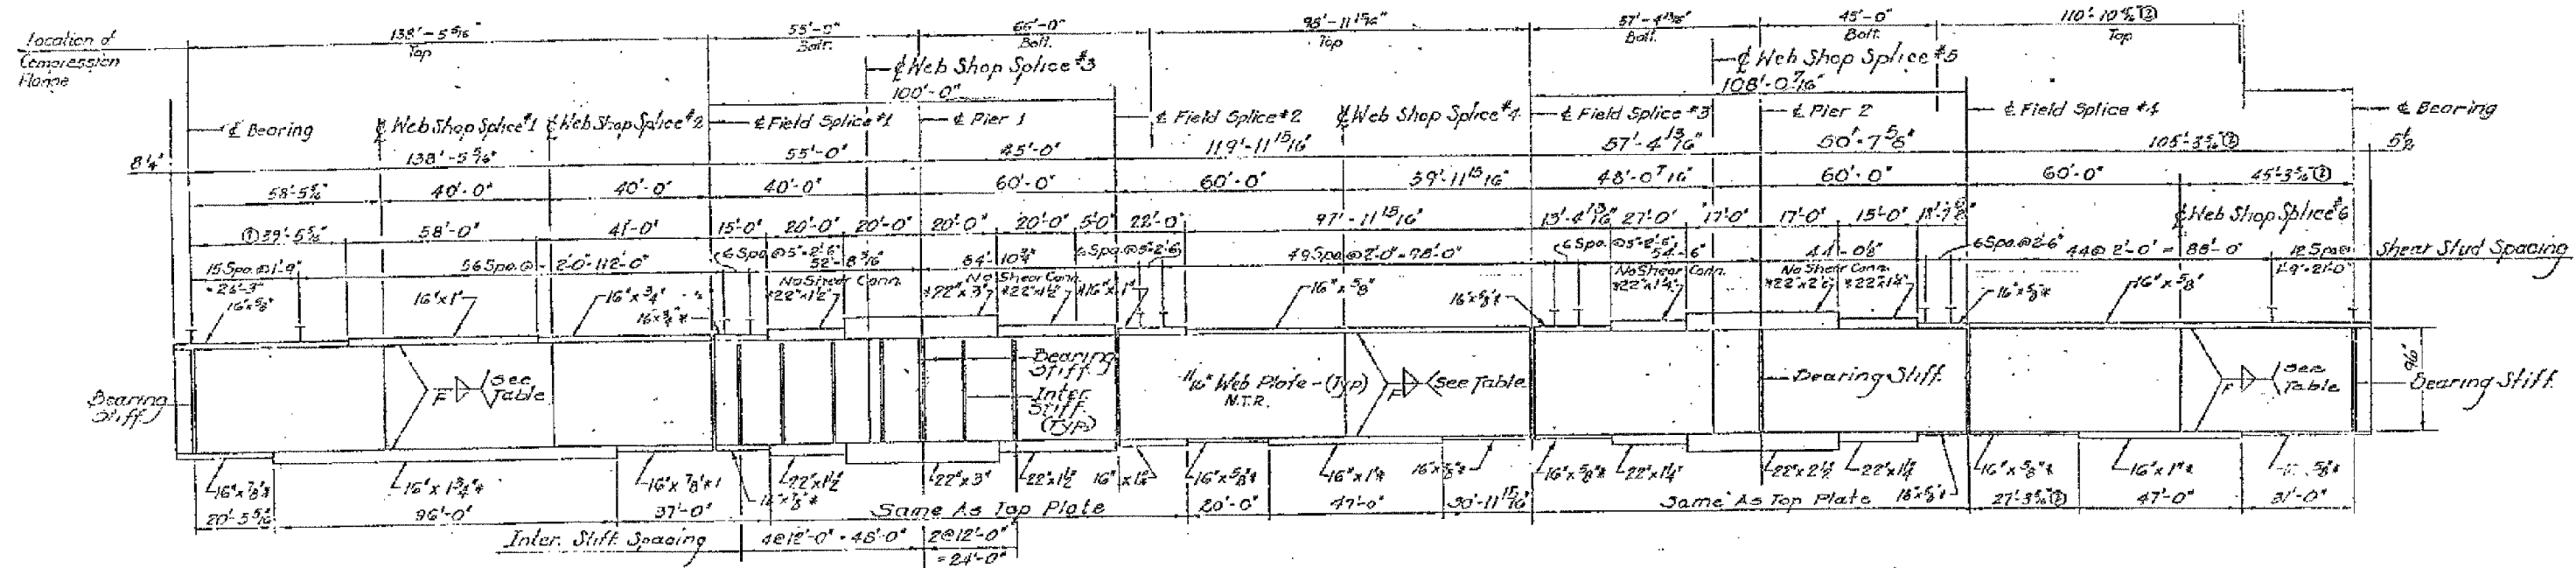 Location of
Compression
Flange
138'-5 5/16"
Top
55'-0"
Bott.
66'-0"
Bott.
98'-11 15/16"
Top
57'-4 13/16"
Bott.
45'-0"
Bott.
Top
℄ Web Shop Splice #3
100'-0"
℄ Web Shop Splice #5
108'-0 7/16"
℄ Bearing
℄ Web Shop Splice #1
℄ Web Shop Splice #2
℄ Field Splice #1
℄ Pier 1
℄ Field Splice #2
℄ Web Shop Splice #4
℄ Field Splice #3
℄ Pier 2
℄ Field Splice #4
℄ Bearing
8 1/4"
138'-5 5/16"
55'-0"
45'-0"
119'-11 15/16"
57'-4 13/16"
50'-7 5/8"
105'-3 5/16 ②
5 1/2
58'-5 5/16"
40'-0"
40'-0"
40'-0"
60'-0"
60'-0"
59'-11 15/16"
48'-0 7/16"
60'-0"
60'-0"
① 39'-5 5/16"
58'-0"
41'-0"
15'-0"
20'-0"
20'-0"
20'-0"
20'-0"
5'-0"
22'-0"
97'-11 15/16"
13'-4 13/16"
27'-0"
17'-0"
17'-0"
15'-0"
℄ Web Shop Splice #6
15 Spa. @ 1'-9"
= 26'-3"
56 Spa. @ - 2'-0"=112'-0"
6 Spa. @ 5"=2'-6"
52'-8 3/16"
64'-10 3/4"
6 Spa. @ 5"=2'-6"
49 Spa. @ 2'-0"=98'-0"
6 Spa. @ 5"=2'-6"
54'-6"
44'-0 1/8"
6 Spa. @ 2'-6"
44 @ 2'-0" = 88'-0"
12 Spa @
1'-9"=21'-0"
Shear Stud Spacing
No Shear Conn.
No Shear Conn.
No Shear Conn.
No Shear Conn.
16"x 5/8"
16"x 1"
16"x 3/4"
16"x 3/4"*
*22"x1 1/2"
*22"x3"
*22"x1 1/2"
*16"x1"
16"x 5/8"
16"x 5/8"*
*22"x1 1/4"
*22"x2 1/2"
*22"x1 1/4"
16"x 5/8"*
16"x 5/8"
Bearing
Stiff.
F
See
Table
Bearing
Stiff.
Inter.
Stiff.
(Typ)
11/16" Web Plate - (Typ)
N.T.R.
F
See Table
Bearing Stiff.
F
See
Table
96"
Bearing Stiff.
16"x 7/8"*
16"x 1 3/4"*
16"x 7/8"*
16"x 7/8"*
22"x1 1/2"
22"x3"
22"x1 1/2
16"x1"
16"x 5/8"*
16"x1"*
16"x 5/8"*
16"x 5/8"*
22"x1 1/4"
22"x2 1/2
22"x1 1/4
16"x 5/8"*
16"x 5/8"*
16"x1"*
20'-5 5/16
96'-0"
37'-0"
Same As Top Plate
20'-0"
47'-0"
30'-11 15/16
Same As Top Plate
27'-3 5/16 ②
47'-0"
31'-0"
Inter. Stiff. Spacing
4@12'-0" = 48'-0"
2@12'-0"
=24'-0"